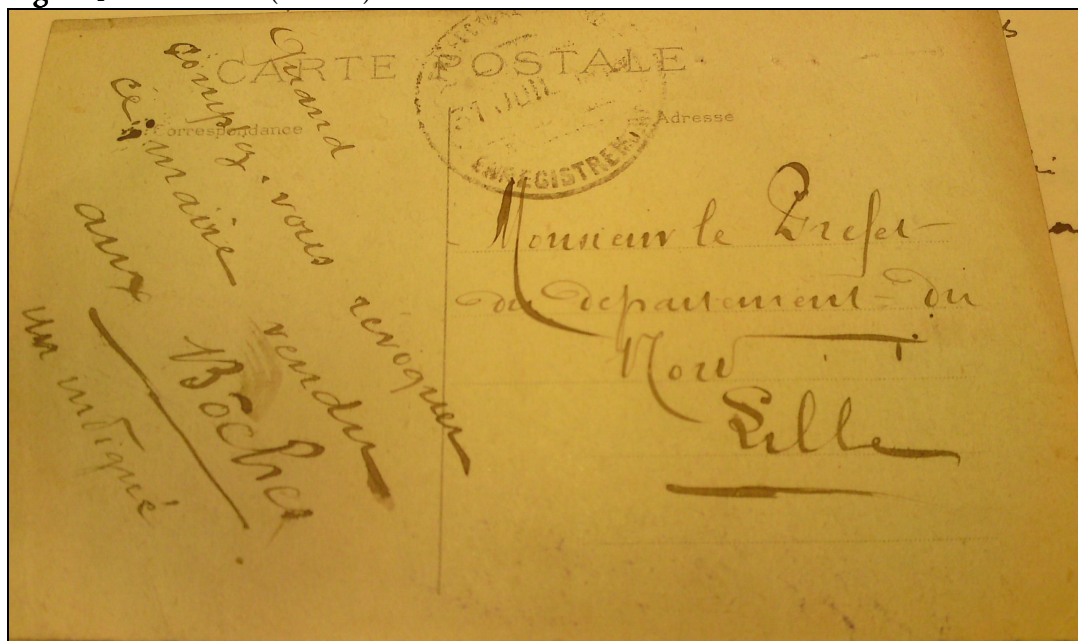 CARTE POSTALE
Correspondance
Adresse
31 JUIL
ENREGISTREMENT
Quand
comptez-vous révoquer
ce maire vendu
aux Boches
un indigné
Monsieur le Préfet
du département du
Nord
Lille